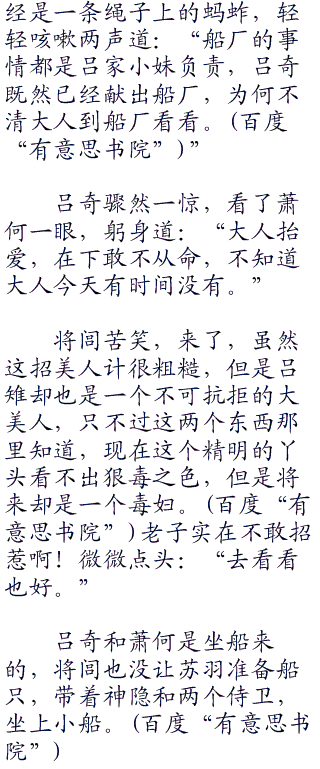 经是一条绳子上的蚂蚱，轻
轻咳嗽两声道：“船厂的事
情都是吕家小妹负责，吕奇
既然已经献出船厂，为何不
清大人到船厂看看。(百度
“有意思书院”)”
吕奇骤然一惊，看了萧
何一眼，躬身道：“大人抬
爱，在下敢不从命，不知道
大人今天有时间没有。”
将闾苦笑，来了，虽然
这招美人计很粗糙，但是吕
雉却也是一个不可抗拒的大
美人，只不过这两个东西那
里知道，现在这个精明的丫
头看不出狠毒之色，但是将
来却是一个毒妇。(百度“有
意思书院”)老子实在不敢招
惹啊！微微点头：“去看看
也好。”
吕奇和萧何是坐船来
的，将闾也没让苏羽准备船
只，带着神隐和两个侍卫，
坐上小船。(百度“有意思书
院”)